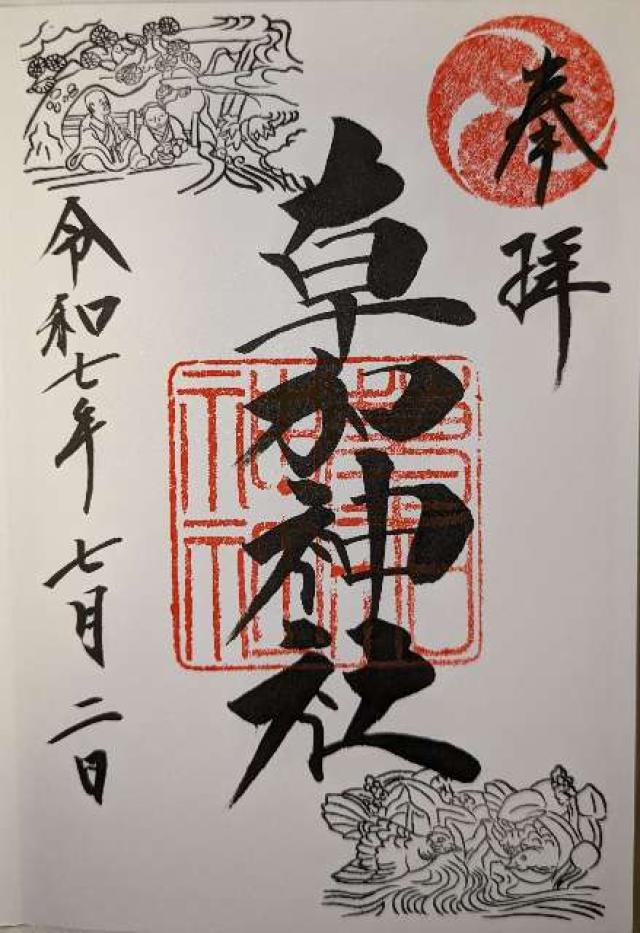 奉
拝
草加神社
令和七年七月二日